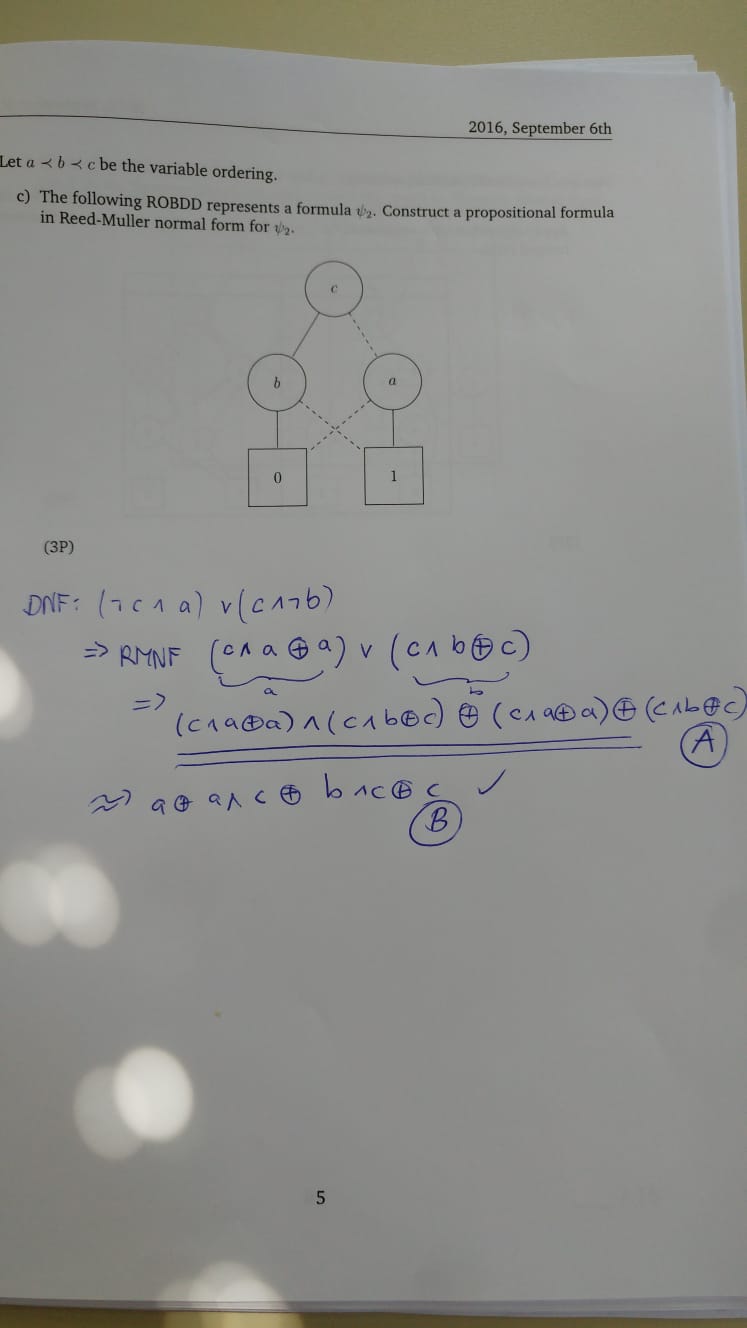 2016, September 6th
Let a ≺ b ≺ c be the variable ordering.
c) The following ROBDD represents a formula ψ₂. Construct a propositional formula
in Reed-Muller normal form for ψ₂.
c
b a
0 1
(3P)
DNF: (¬c ∧ a) ∨ (c ∧ ¬b)
=> RMNF (c ∧ a ⊕ a) ∨ (c ∧ b ⊕ c)
a b
=> (c ∧ a ⊕ a) ∧ (c ∧ b ⊕ c) ⊕ (c ∧ a ⊕ a) ⊕ (c ∧ b ⊕ c)
A
a ⊕ a ∧ c ⊕ b ∧ c ⊕ c ✓
B
5